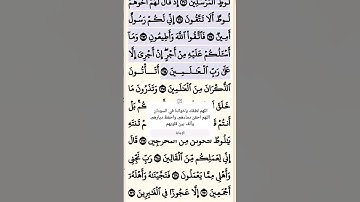 لُوطٍ ٱلْمُرْسَلِينَ إِذْ قَالَ لَهُمْ أَخُوهُمْ
لُوطٌ أَلَا تَتَّقُونَ إِنِّى لَكُمْ رَسُولٌ
أَمِينٌ فَٱتَّقُوا۟ ٱللَّهَ وَأَطِيعُونِ
أَسْـَٔلُكُمْ عَلَيْهِ مِنْ أَجْرٍ إِنْ أَجْرِىَ إِلَّا
عَلَىٰ رَبِّ ٱلْعَـٰلَمِينَ أَتَأْتُونَ
ٱلذُّكْرَانَ مِنَ ٱلْعَـٰلَمِينَ وَتَذَرُونَ مَا
خَلَقَ بَلْ
اللهم الطف بإخواننا في السودان
اللهم احقن دماءهم، واحفظ ديارهم،
وألف بين قلوبهم
أَنتُمْ
يَـٰلُوطُ لَتَكُونَنَّ مِنَ ٱلْمُخْرَجِينَ قَالَ
إِنِّى لِعَمَلِكُم مِّنَ ٱلْقَالِينَ رَبِّ نَجِّنِى
وَأَهْلِى مِمَّا يَعْمَلُونَ فَنَجَّيْنَـٰهُ وَأَهْلَهُۥٓ
أَجْمَعِينَ إِلَّا عَجُوزًا فِى ٱلْغَـٰبِرِينَ